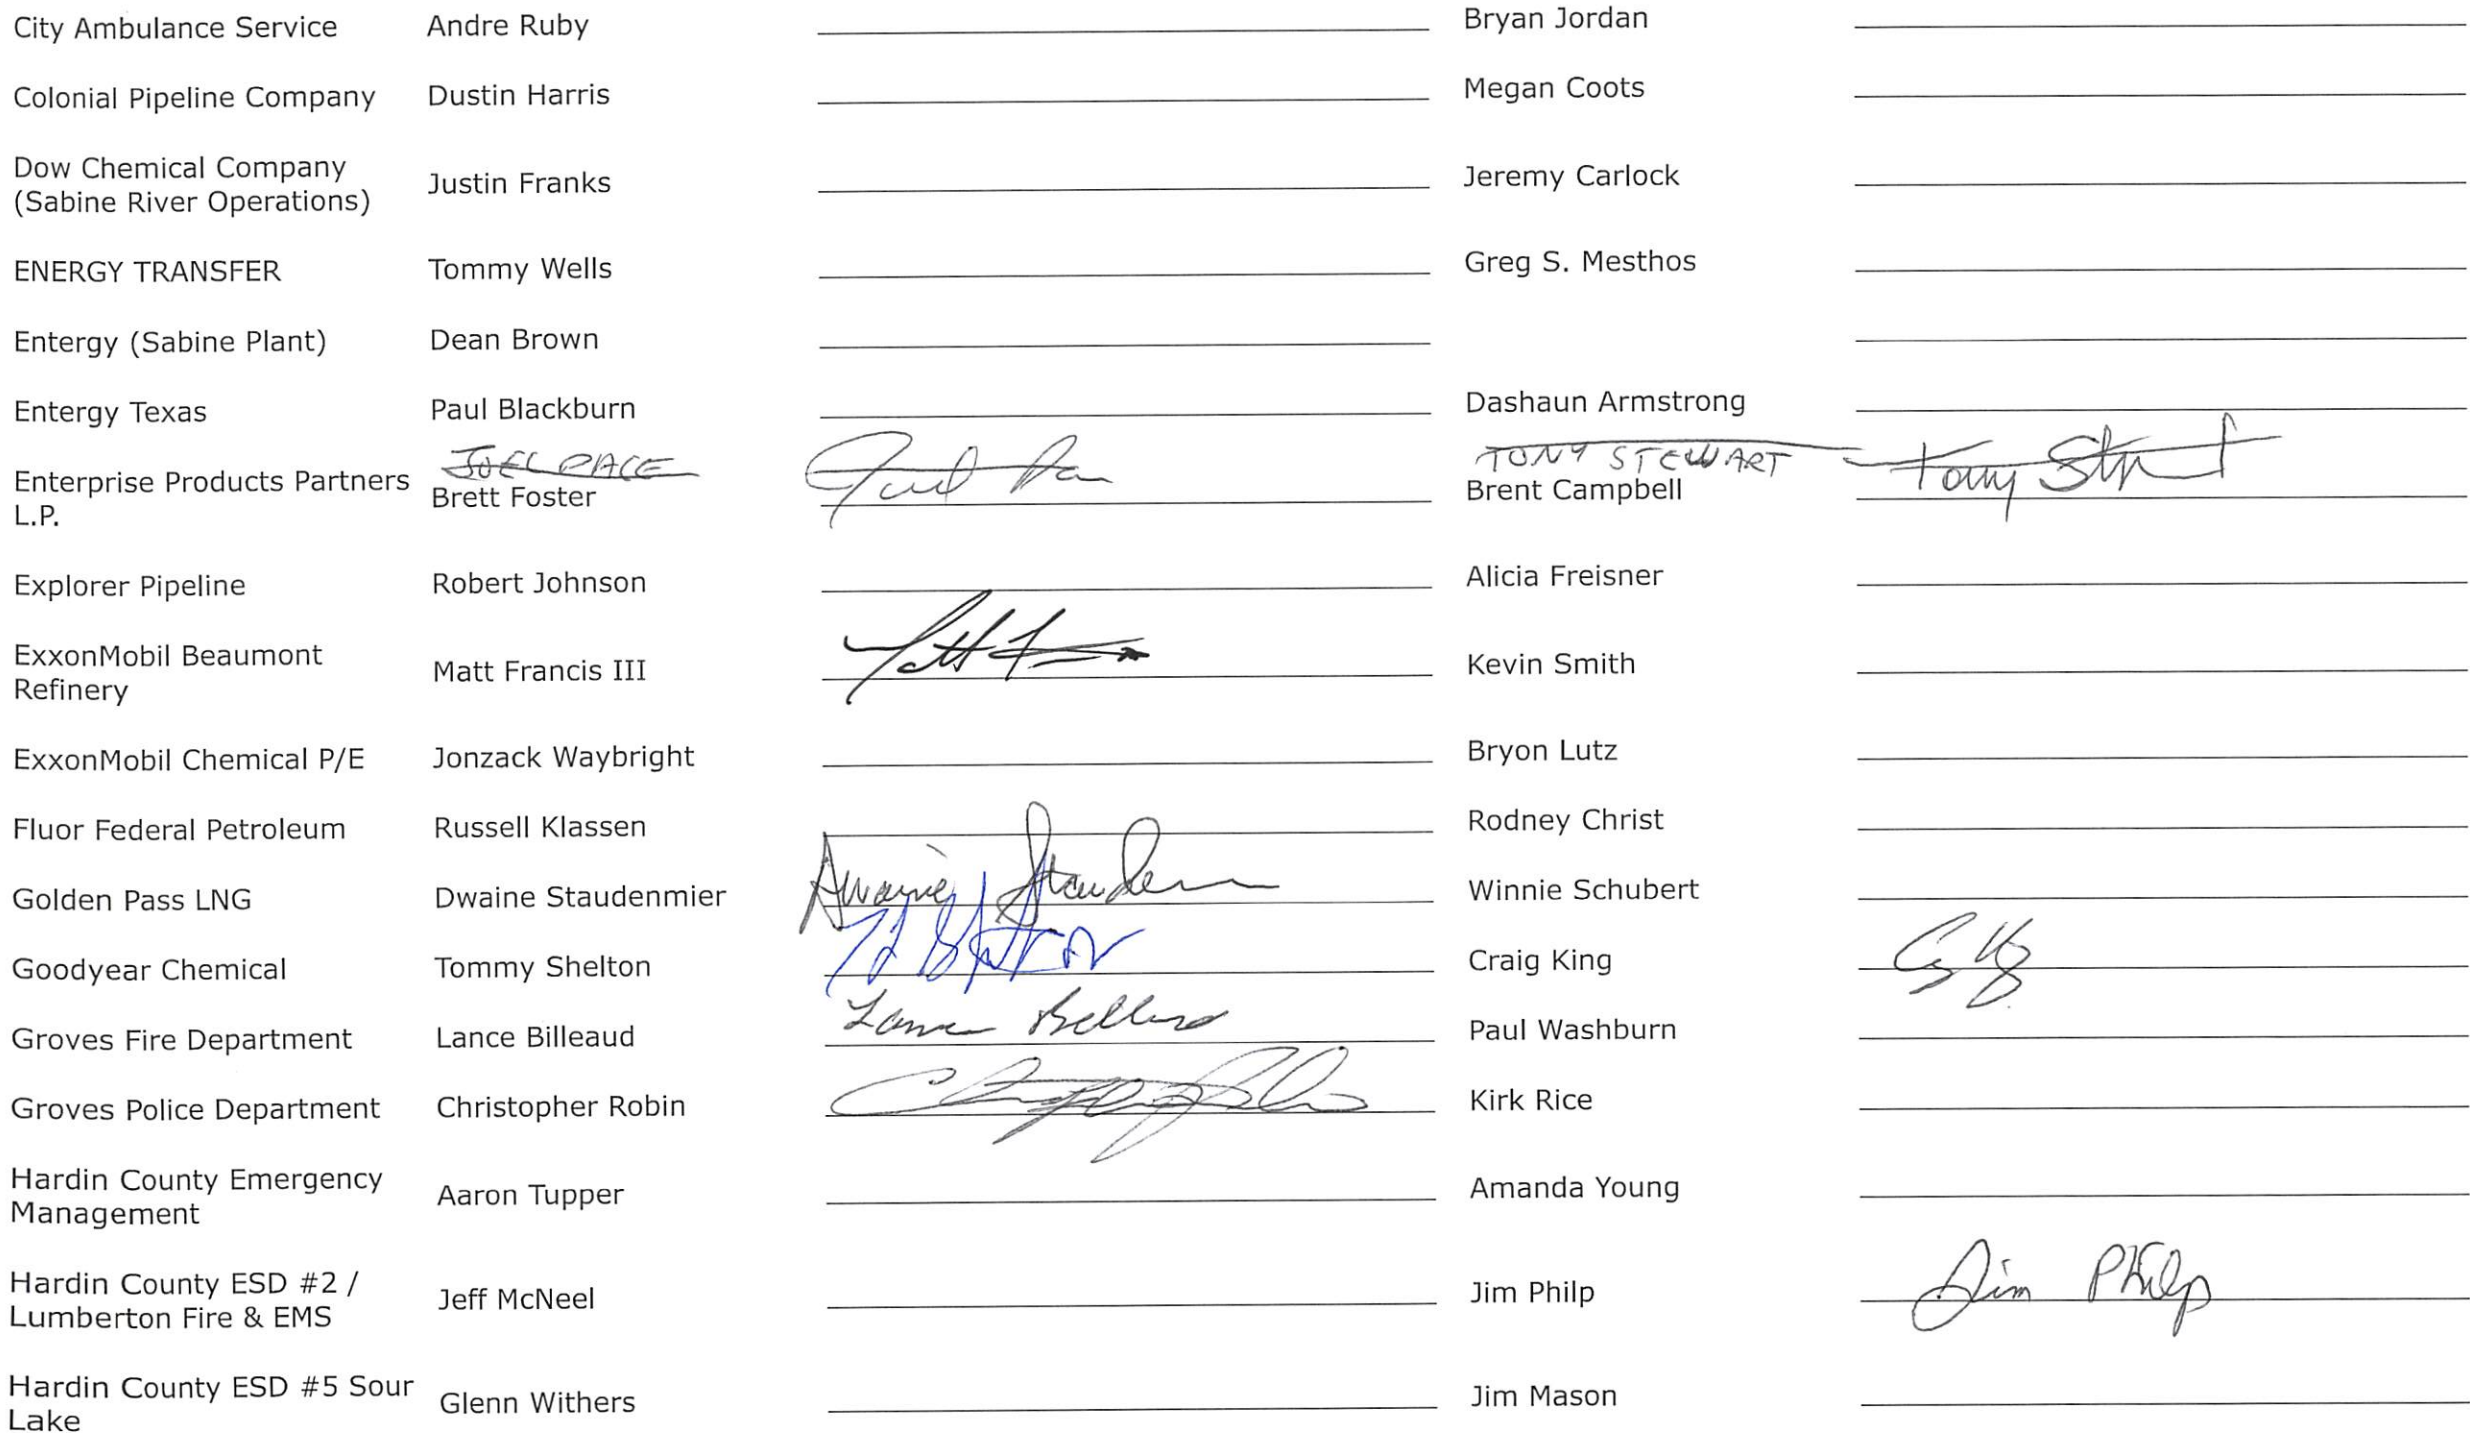 City Ambulance Service Andre Ruby Bryan Jordan
Colonial Pipeline Company Dustin Harris Megan Coots
Dow Chemical Company
(Sabine River Operations) Justin Franks Jeremy Carlock
ENERGY TRANSFER Tommy Wells Greg S. Mesthos
Entergy (Sabine Plant) Dean Brown
Entergy Texas Paul Blackburn Dashaun Armstrong
JOEL PACE TONY STEWART Tony
Enterprise Products Partners
L.P. Brett Foster Brent Campbell
Explorer Pipeline Robert Johnson Alicia Freisner
ExxonMobil Beaumont
Refinery Matt Francis III Matt Kevin Smith
ExxonMobil Chemical P/E Jonzack Waybright Bryon Lutz
Fluor Federal Petroleum Russell Klassen Rodney Christ
Golden Pass LNG Dwaine Staudenmier Dwaine Winnie Schubert
Goodyear Chemical Tommy Shelton Craig King
Groves Fire Department Lance Billeaud Lance Paul Washburn
Groves Police Department Christopher Robin Kirk Rice
Hardin County Emergency
Management Aaron Tupper Amanda Young
Hardin County ESD #2 /
Lumberton Fire & EMS Jeff McNeel Jim Philp Jim Philp
Hardin County ESD #5 Sour
Lake Glenn Withers Jim Mason